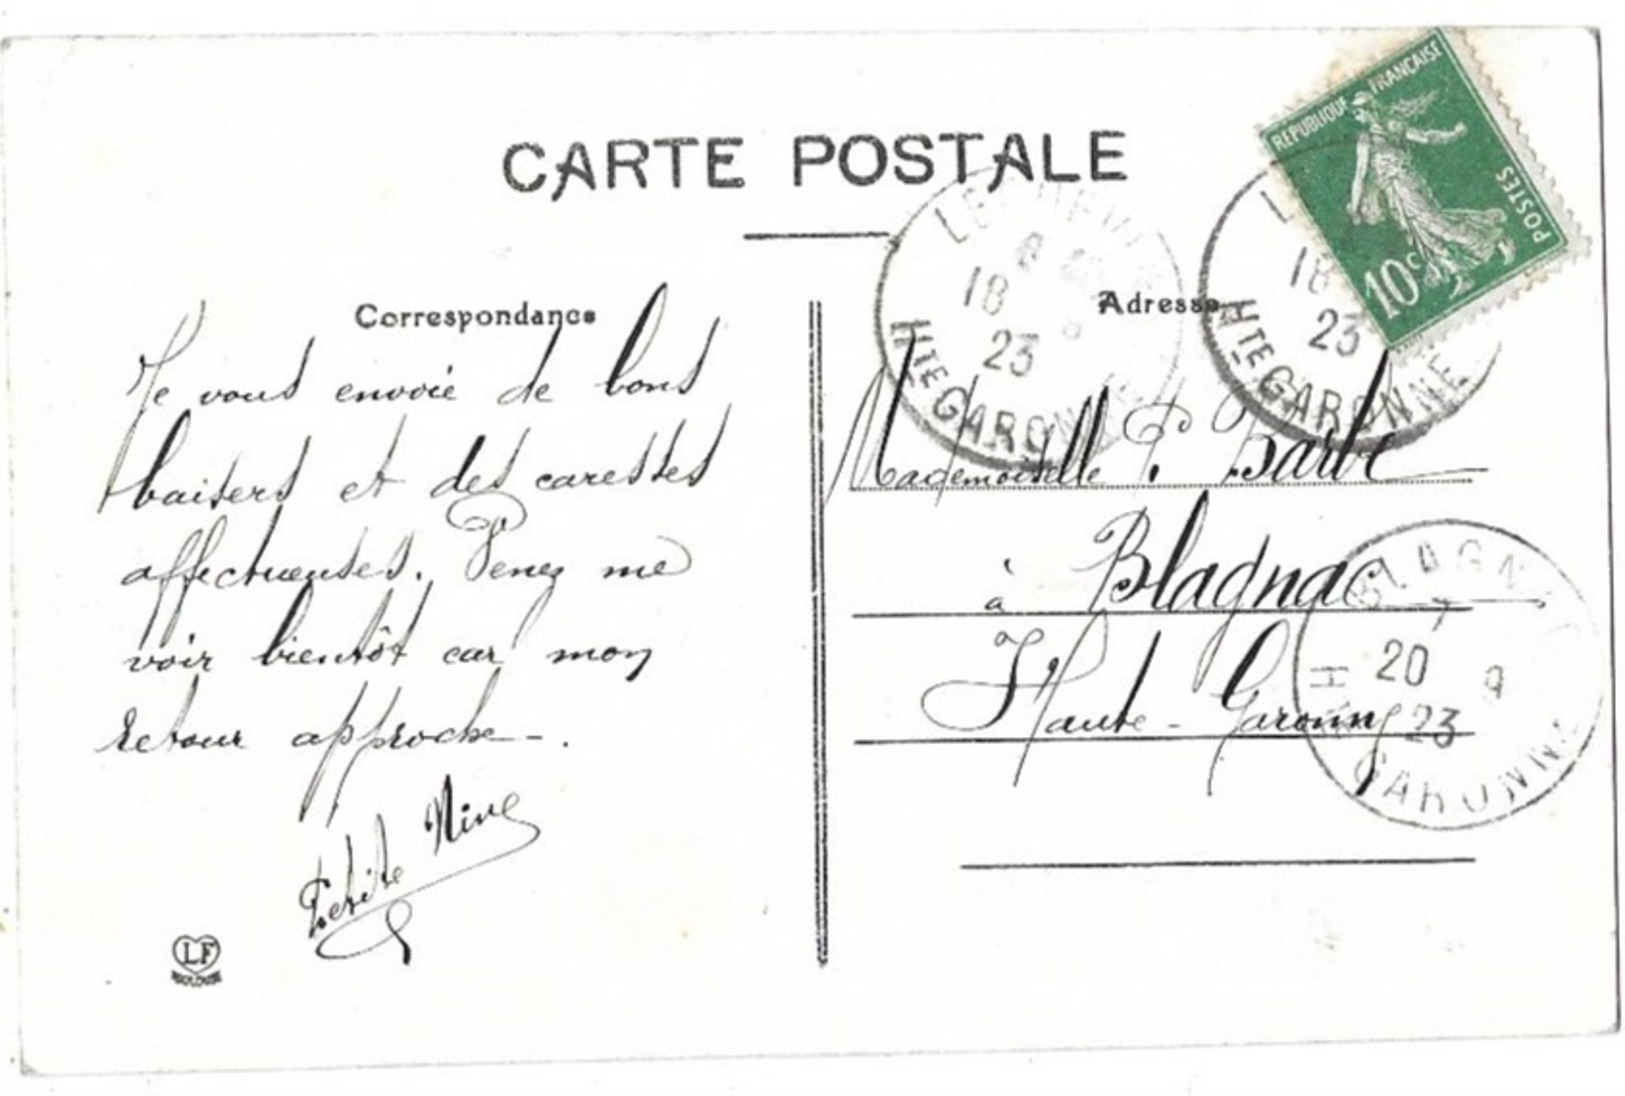 CARTE POSTALE
RÉPUBLIQUE FRANÇAISE
POSTES
10c
Correspondance
Adresse
18 8
23
Hte GARONNE
18
23
Hte GARONNE
Je vous envoie de bons
baisers et des caresses
affectueuses. Venez me
voir bientôt car mon
retour approche-.
Nine
Mademoiselle P. Barbe
à Blagnac
Haute-Garonne
BLAGNAC
20 9
23
GARONNE
LF
TOULOUSE